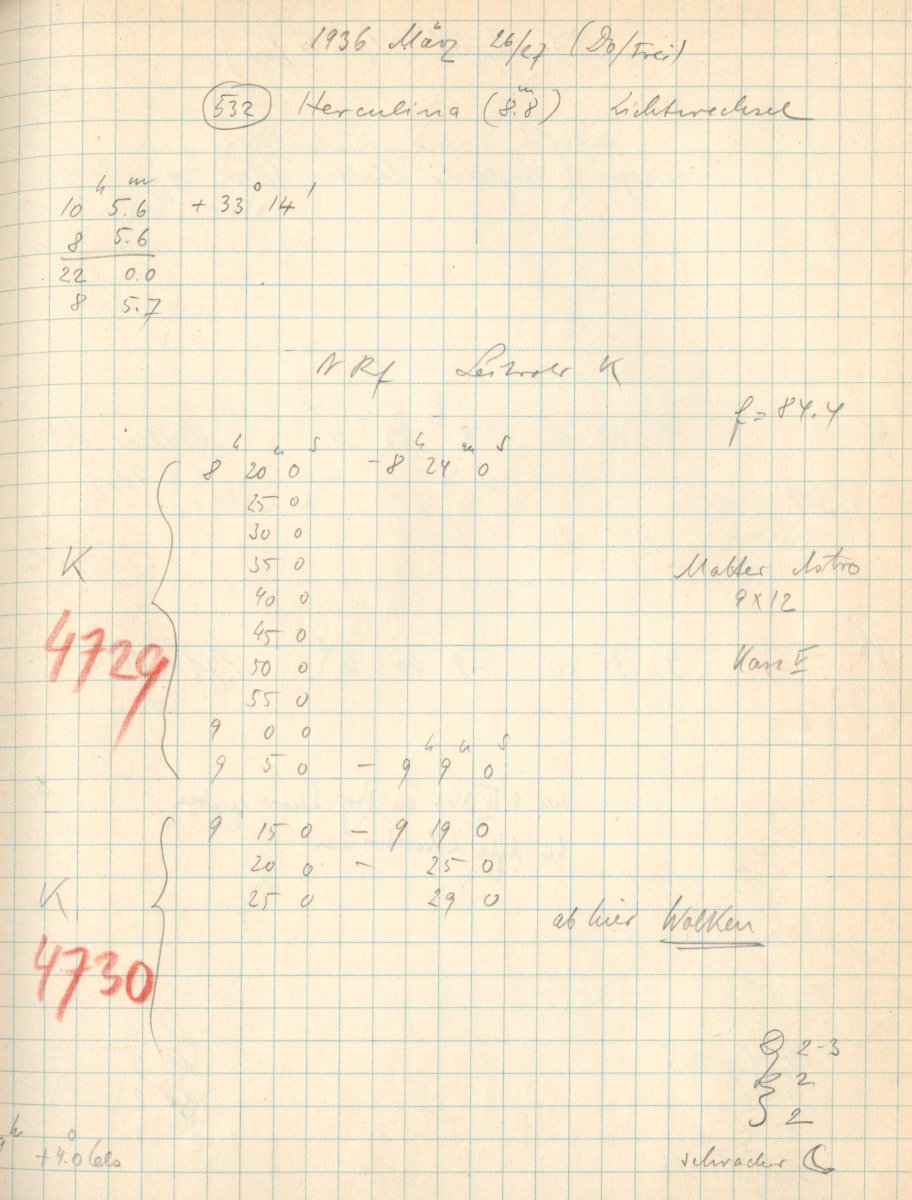 1936 März 26/27 (Do/Frei)
532 Herculina (8.8m) Lichtwechsel
10h 5.6m + 33° 14'
8 5.6
22 0.0
8 5.7
N Rf Leitrohr K
f = 84.4
8h 20m 0s - 8h 24m 0s
25 0
30 0
K 35 0
Matter Astro
40 0
9 x 12
45 0
4729
50 0
Kass V
55 0
9 0 0
9 5 0 - 9h 9m 0s
9 15 0 - 9 19 0
20 0 - 25 0
K 25 0 29 0
ab hier Wolken
4730
2-3
2
2
+4.0 Cels
schwacher ☾